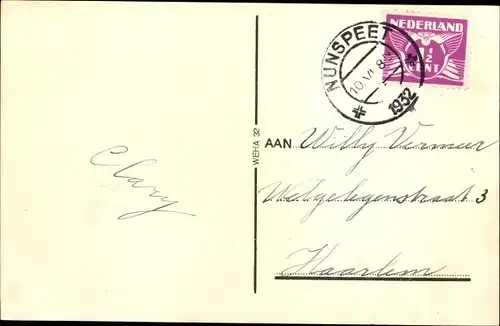 NUNSPEET
10.VI.8
1932
NEDERLAND
1½
CENT
WEHA 32
Clary
AAN Willy Vermeer
Welgelegenstraat 3
Haarlem